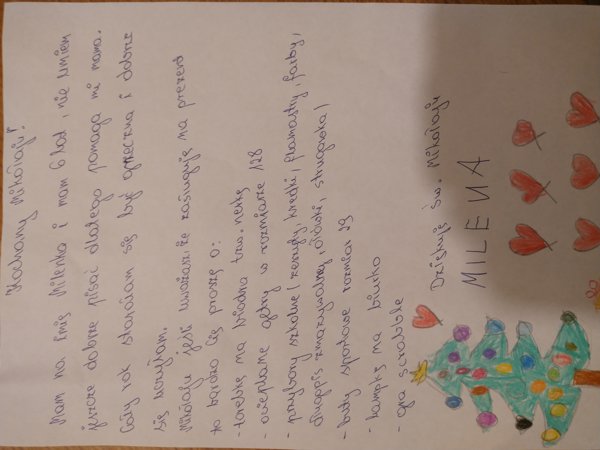 Kochany Mikołaju!
Mam na imię Milenka i mam 6 lat, nie umiem
jeszcze dobrze pisać dlatego pomaga mi mama.
Cały rok starałam się być grzeczna i dobrze
się uczyłam.
Mikołaju jeśli uważasz że zasługuję na prezent
to bardzo Cię proszę o:
- torebkę na biodra tzw. nerkę
- ocieplane getry w rozmiarze 128
- przybory szkolne (zeszyty, kredki, flamastry, farby,
długopis zmazywalny, ołówki, strugawka)
- buty sportowe rozmiar 29
- lampkę na biurko
- gra scrabble
Dziękuję Św. Mikołaju
MILENA